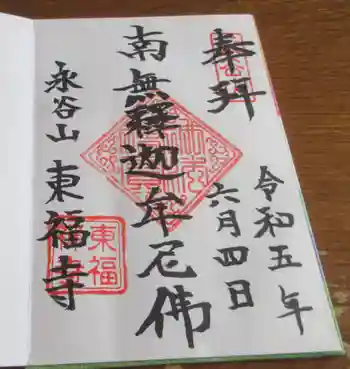 奉拝
令和五年
六月四日
南無釋迦牟尼佛
永谷山
東福寺
東福